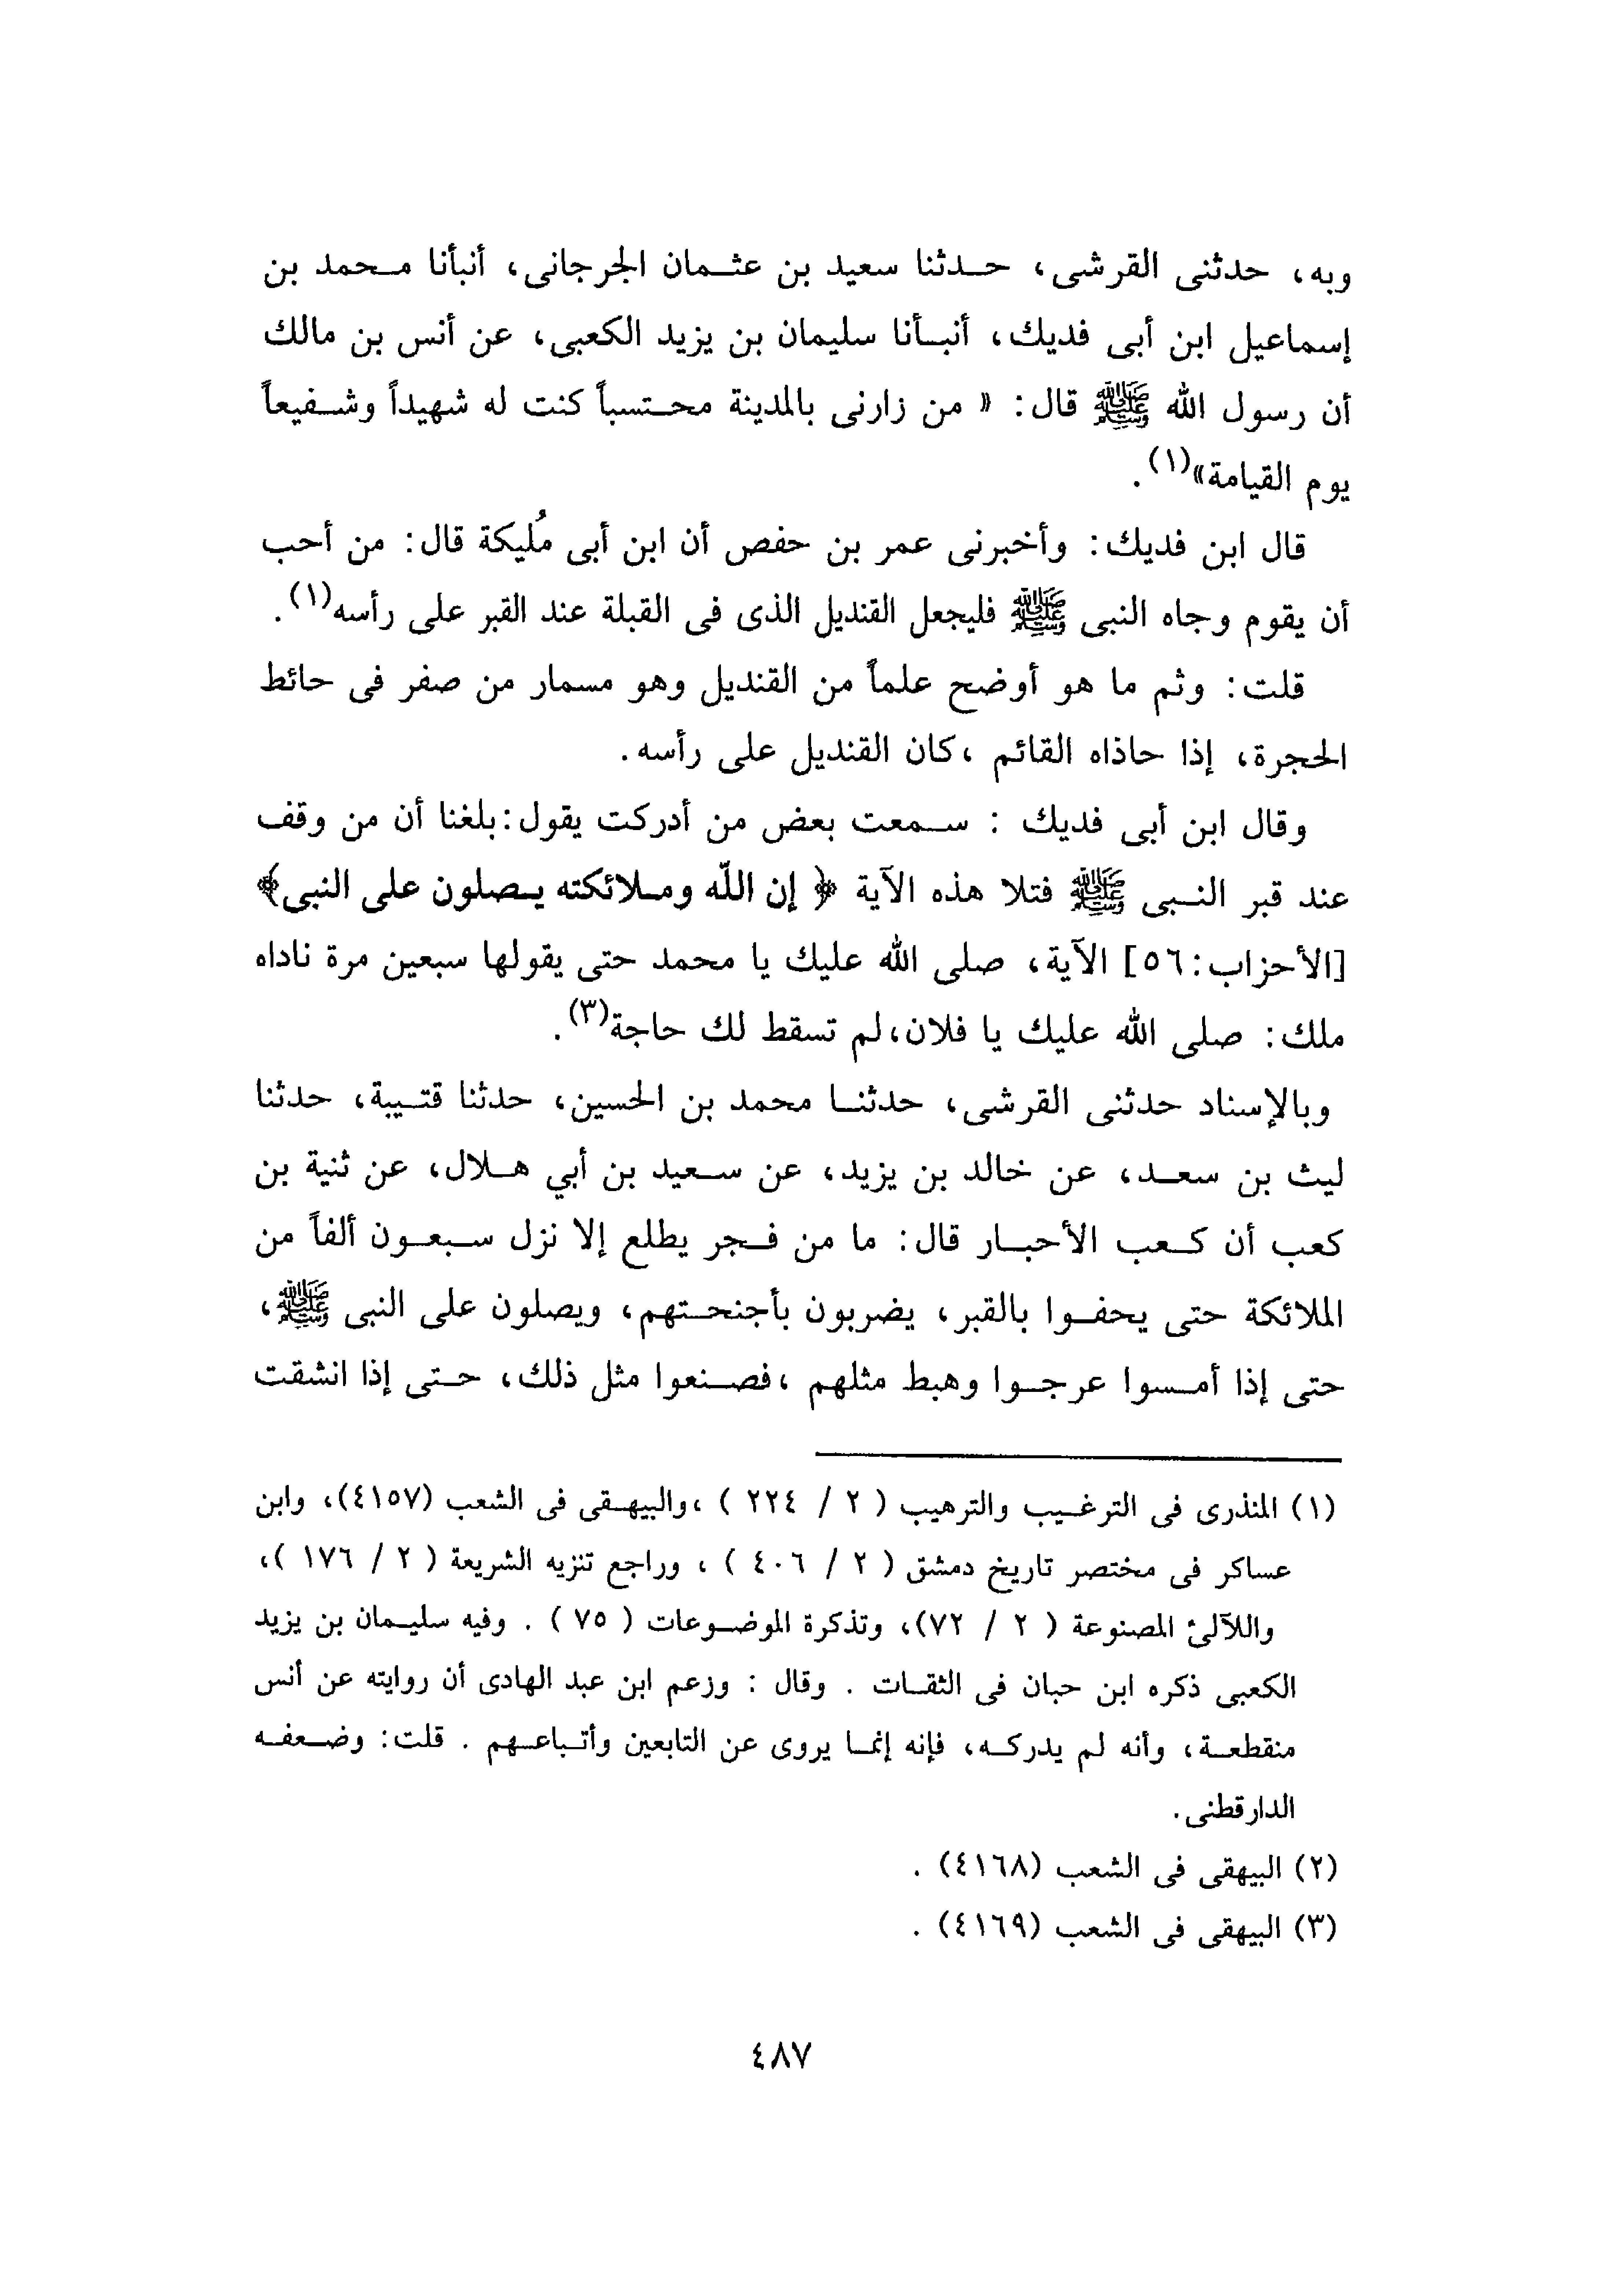 وبه، حدثنى القرشى، حدثنا سعيد بن عثمان الجرجانى، أنبأنا محمد بن
إسماعيل ابن أبى فديك، أنبأنا سليمان بن يزيد الكعبى، عن أنس بن مالك
أن رسول الله ﷺ قال: « من زارنى بالمدينة محتسباً كنت له شهيداً وشفيعاً
يوم القيامة»(١).
قال ابن فديك: وأخبرنى عمر بن حفص أن ابن أبى مُليكة قال: من أحب
أن يقوم وجاه النبى ﷺ فليجعل القنديل الذى فى القبلة عند القبر على رأسه(١).
قلت: وثم ما هو أوضح علماً من القنديل وهو مسمار من صفر فى حائط
الحجرة، إذا حاذاه القائم ،كان القنديل على رأسه.
وقال ابن أبى فديك : سمعت بعض من أدركت يقول:بلغنا أن من وقف
عند قبر النبى ﷺ فتلا هذه الآية ﴿ إن اللّه وملائكته يصلون على النبى﴾
[الأحزاب:٥٦] الآية، صلى الله عليك يا محمد حتى يقولها سبعين مرة ناداه
ملك: صلى الله عليك يا فلان،لم تسقط لك حاجة(٣).
وبالإسناد حدثنى القرشى، حدثنا محمد بن الحسين، حدثنا قتيبة، حدثنا
ليث بن سعد، عن خالد بن يزيد، عن سعيد بن أبي هلال، عن ثنية بن
كعب أن كعب الأحبار قال: ما من فجر يطلع إلا نزل سبعون ألفاً من
الملائكة حتى يحفوا بالقبر، يضربون بأجنحتهم، ويصلون على النبى ﷺ،
حتى إذا أمسوا عرجوا وهبط مثلهم ،فصنعوا مثل ذلك، حتى إذا انشقت
(١) المنذرى فى الترغيب والترهيب ( ٢ / ٢٢٤ ) ،والبيهقى فى الشعب (٤١٥٧)، وابن
عساكر فى مختصر تاريخ دمشق ( ٢ / ٤٠٦ ) ، وراجع تنزيه الشريعة ( ٢ / ١٧٦ )،
واللآلئ المصنوعة ( ٢ / ٧٢)، وتذكرة الموضوعات ( ٧٥ ) . وفيه سليمان بن يزيد
الكعبى ذكره ابن حبان فى الثقات . وقال : وزعم ابن عبد الهادى أن روايته عن أنس
منقطعة، وأنه لم يدركه، فإنه إنما يروى عن التابعين وأتباعهم . قلت: وضعفه
الدارقطنى.
(٢) البيهقى فى الشعب (٤١٦٨) .
(٣) البيهقى فى الشعب (٤١٦٩) .
٤٨٧